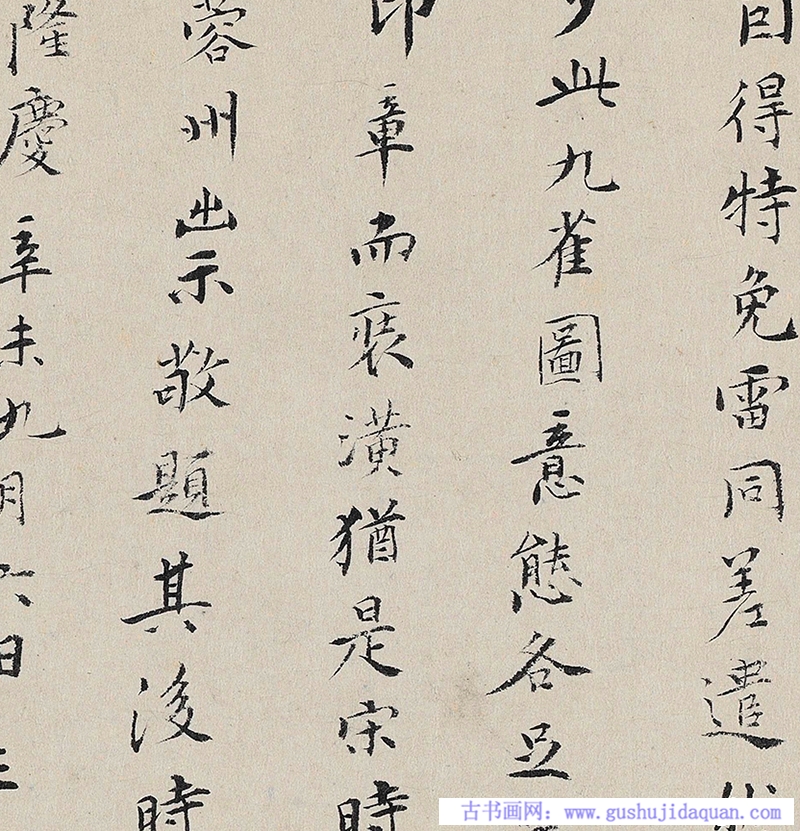 得特免雷同差遣
此九雀圖意態各
印章而裝潢猶是宋時
蓉州出示敬題其後時
隆慶辛未九月六日
古书画网：www.gushujidaquan.com